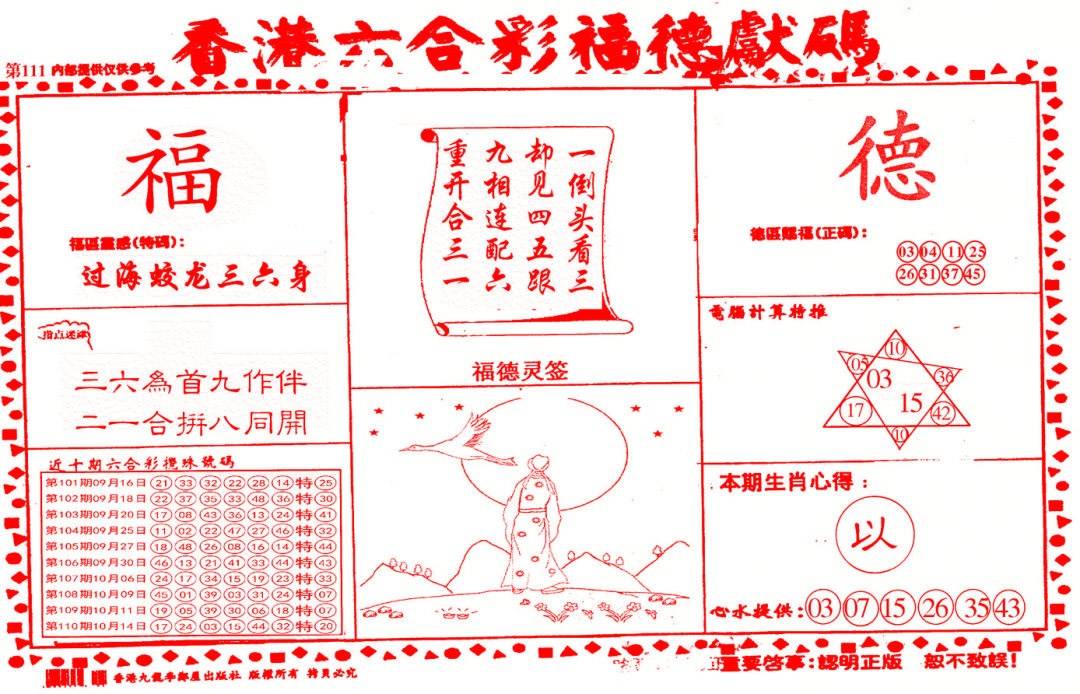 香港六合彩福德獻碼
第111 內部提供仅供參考
福
福區靈感(特碼):
过海蛟龙三六身
指点迷津
三六為首九作伴
二一合拼八同開
近十期六合彩攪珠號碼
第101期09月16日 21 33 32 22 28 14 特 25
第102期09月18日 22 37 35 33 48 36 特 30
第103期09月20日 17 08 43 36 13 24 特 41
第104期09月25日 11 02 22 47 27 46 特 32
第105期09月27日 18 48 26 08 16 14 特 44
第106期09月30日 46 13 21 41 33 44 特 43
第107期10月06日 24 17 34 15 19 23 特 33
第108期10月09日 45 01 39 03 31 24 特 07
第109期10月11日 19 05 39 30 06 18 特 07
第110期10月14日 17 24 03 15 44 32 特 20
一倒头看三
却见四五跟
九相连配六
重开合三一
福德灵签
德
德區賜福(正碼):
03 04 11 25
26 31 37 45
電腦計算特推
10
05 03 36
17 15 42
10
本期生肖心得:
以
心水提供: 03 07 15 26 35 43
香港九龍李鄭屋出版社 版權所有 拷貝必究
重要啓事:認明正版 恕不致誤!